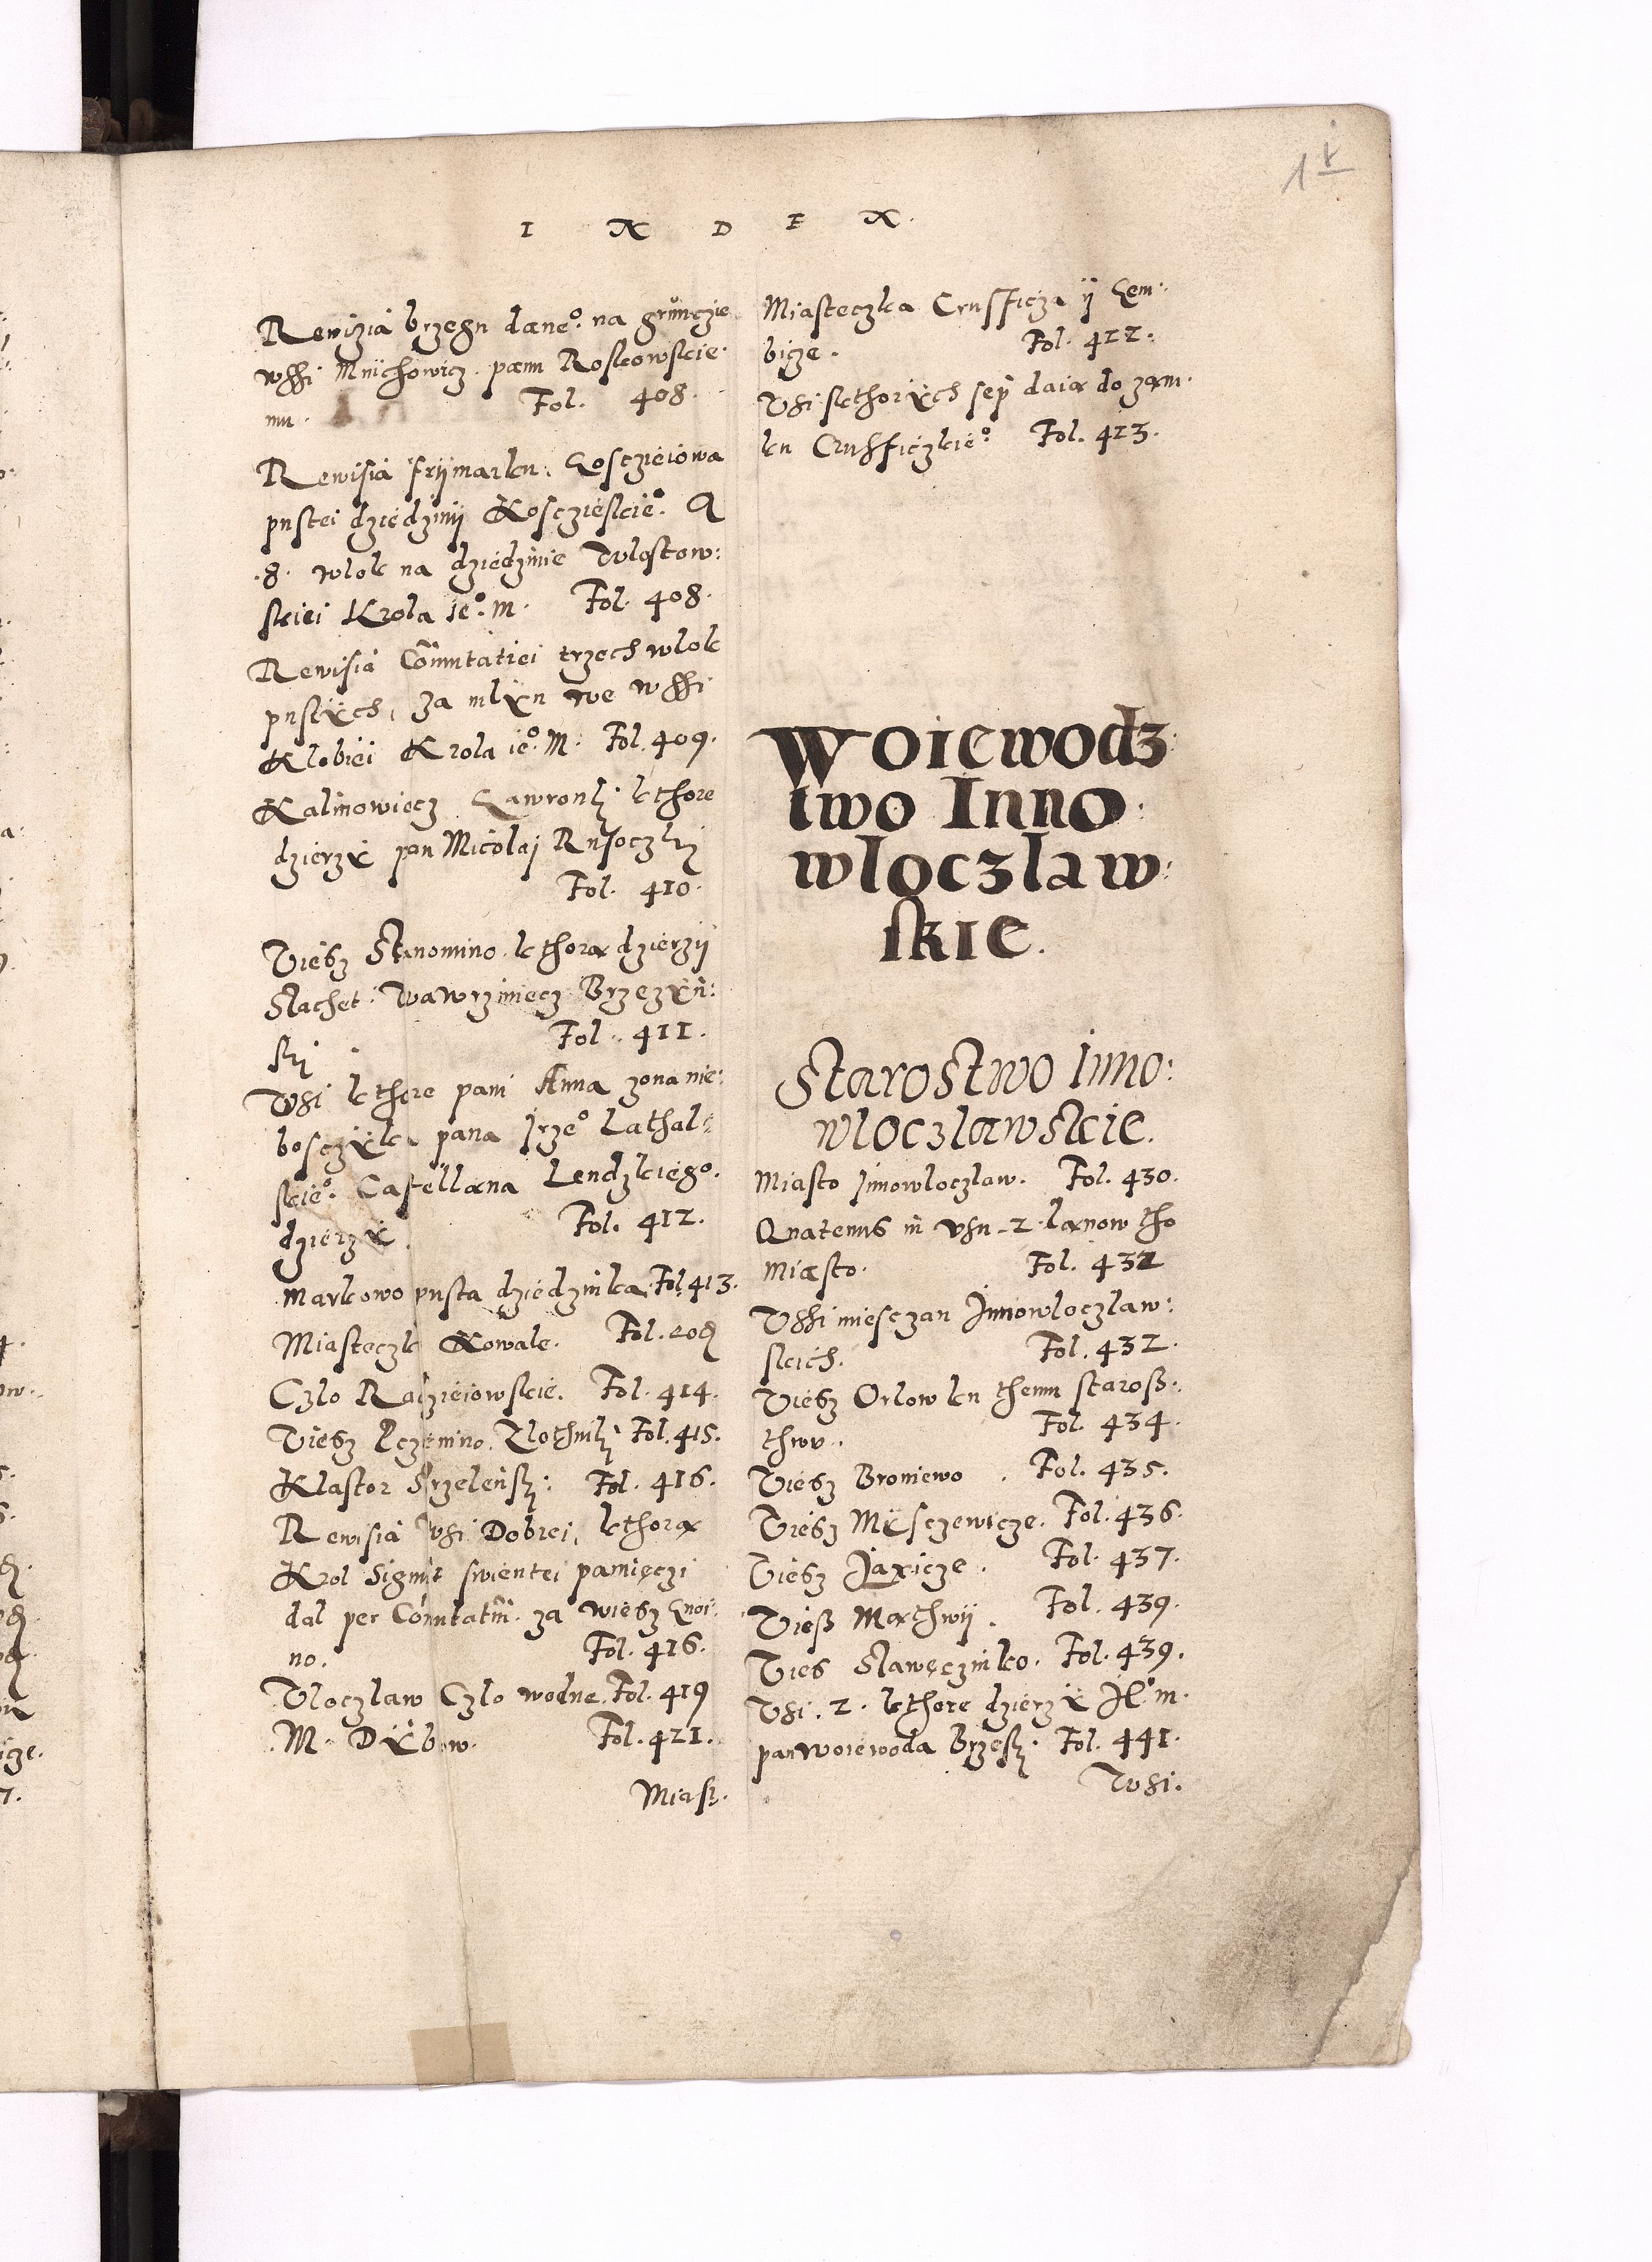 I N D E X.
Rewizia brzegu dane°. na grunczie
wssi Mnichowicz. panu Roskowskie·
mu. Fol. 408.
Rewisia frijmarku: Gosczieiowa
pustei dziedzinij Kosczieskie°. A
.8. wlok na dziedzinie Wlostow:
skiei Krola ie°. m. Fol. 408.
Rewisia Cõmutatiei trzech wlok
pustÿch, za mlÿn we wssi
Klobiei Krola ie°. M. Fol. 409.
Kalinowiecz Gawronki kthore
dzierzÿ pan Micolaj Rusoczki
Fol. 410.
Viesz Stanomino. kthora dzierzij
Slachet: Wawrziniecz Brzezÿn:
ski Fol. 411.
Wsi kthore pani Anna zona nie:
bosczÿka pana Jrze° Lathal:
skie°. Castellana Lendzkiego.
dzierzÿ. Fol. 412.
Markowo pusta dziedzinka. Fol. 413.
Miasteczk Kowale. Fol.
Czlo Radzieiowskie. Fol. 414.
Viesz Zlothniki Fol. 415.
Klastor Strzelenski: Fol. 416.
Rewisia Wsi Dobrei, kthora
Krol Sigmt swientei pamięczi
dal per Cõmutatm̃. za wiesz Gnoi:
no. Fol. 416.
Vloczlaw Czlo wodne. Fol. 419
M. Dÿbow. Fol. 421.
Miast.
Miasteczka Crussficza ij Gem:
bize. Fol. 422.
Vsi skthorÿch sep daia do zam·
ku Crussficzkie°. Fol. 423.
Woiewodz:
two Inno:
wloczlaw:
skie.
Starostwo Inno:
wloczlawskie.
Miasto Jnnowloczlaw. Fol. 430.
Quatenus in vsu. z. lanow tho
Miasto. Fol. 432
Vssi miesczan Jnnowloczlaw:
skich. Fol. 432.
Viesz Orlow ku themu starosz:
thwu. Fol. 434.
Viesz Broniewo. Fol. 435.
Viesz Mÿsczewicze. Fol. 436.
Viesz Jaxicze. Fol. 437.
Viesz Marthwij. Fol. 439.
Vies Slawęczinko. Fol. 439.
Vsi. 2. kthore dzierzÿ J° m.
pan woiewoda Brzeski. Fol. 441.
Wsi.